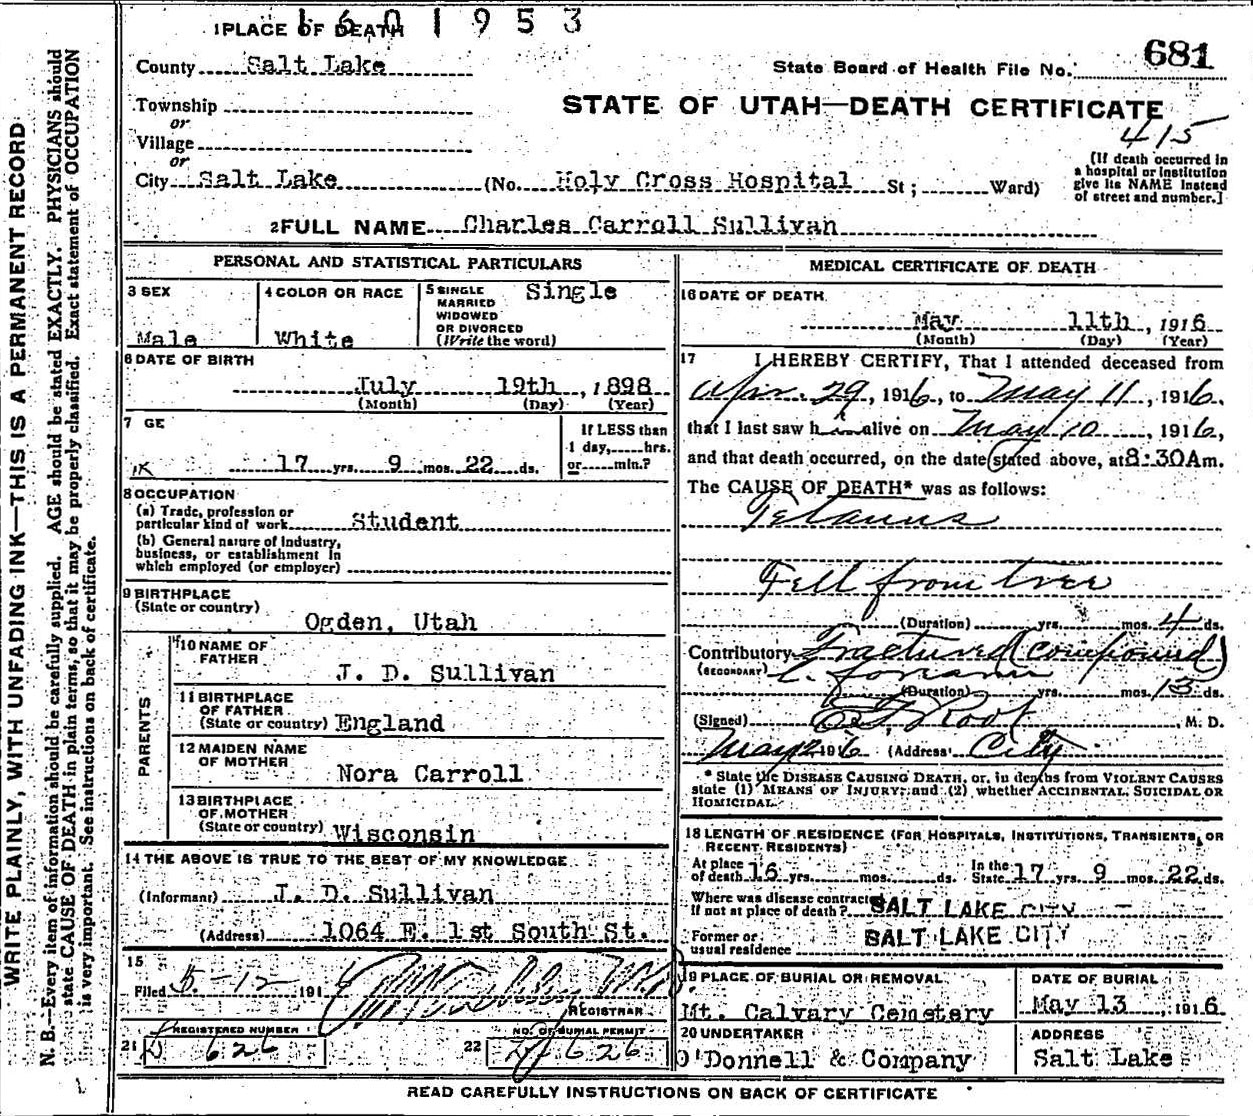 1601953
1 PLACE OF DEATH
681
County Salt Lake
State Board of Health File No.
Township
or
STATE OF UTAH—DEATH CERTIFICATE
415
Village
or
City Salt Lake (No. Holy Cross Hospital St; Ward)
(If death occurred in
a hospital or institution
give its NAME instead
of street and number.)
2 FULL NAME Charles Carroll Sullivan
PERSONAL AND STATISTICAL PARTICULARS
3 SEX
Male
4 COLOR OR RACE
White
5 SINGLE
MARRIED
WIDOWED
OR DIVORCED
(Write the word)
Single
6 DATE OF BIRTH
July 19th, 1898
(Month) (Day) (Year)
7 GE
17 yrs. 9 mos. 22 ds.
If LESS than
1 day, hrs.
or min.?
8 OCCUPATION
(a) Trade, profession or
particular kind of work Student
(b) General nature of Industry,
business, or establishment in
which employed (or employer)
9 BIRTHPLACE
(State or country)
Ogden, Utah
PARENTS
10 NAME OF
FATHER
J. D. Sullivan
11 BIRTHPLACE
OF FATHER
(State or country) England
12 MAIDEN NAME
OF MOTHER
Nora Carroll
13 BIRTHPLACE
OF MOTHER
(State or country) Wisconsin
14 THE ABOVE IS TRUE TO THE BEST OF MY KNOWLEDGE
(Informant) J. D. Sullivan
(Address) 1064 E. 1st South St.
15
Filed 5-12 191
REGISTRAR
REGISTERED NUMBER
21 626
NO. OF BURIAL PERMIT
22 626
MEDICAL CERTIFICATE OF DEATH
16 DATE OF DEATH
May 11th, 1916
(Month) (Day) (Year)
17 I HEREBY CERTIFY, That I attended deceased from
Apr. 29, 1916, to May 11, 1916.
that I last saw him alive on May 10, 1916,
and that death occurred, on the date stated above, at 8:30Am.
The CAUSE OF DEATH* was as follows:
Tetanus
Fell from tree
(Duration) yrs. mos. 4 ds.
Contributory Fractured (compound)
(SECONDARY) L. forearm
(Duration) yrs. mos. 13 ds.
(Signed) Root M. D.
May 12 1916 (Address) City
* State the DISEASE CAUSING DEATH, or, in deaths from VIOLENT CAUSES
state (1) MEANS OF INJURY; and (2) whether ACCIDENTAL, SUICIDAL OR
HOMICIDAL.
18 LENGTH OF RESIDENCE (FOR HOSPITALS, INSTITUTIONS, TRANSIENTS, OR
RECENT RESIDENTS)
At place
of death 16 yrs. mos. ds.
In the
State 17 yrs. 9 mos. 22 ds.
Where was disease contracted
if not at place of death? SALT LAKE CITY
Former or
usual residence SALT LAKE CITY
19 PLACE OF BURIAL OR REMOVAL
Mt. Calvary Cemetery
DATE OF BURIAL
May 13, 1916
20 UNDERTAKER
O'Donnell & Company
ADDRESS
Salt Lake
READ CAREFULLY INSTRUCTIONS ON BACK OF CERTIFICATE
WRITE PLAINLY, WITH UNFADING INK—THIS IS A PERMANENT RECORD
N. B.—Every item of information should be carefully supplied. AGE should be stated EXACTLY. PHYSICIANS should
state CAUSE OF DEATH in plain terms, so that it may be properly classified. Exact statement of OCCUPATION
is very important. See instructions on back of certificate.